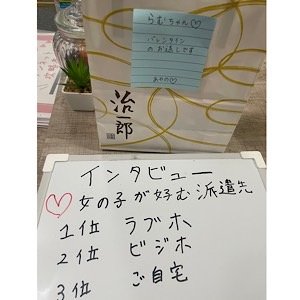 らむちゃん♡
バレンタイン
のお返しです
治一郎
インタビュー
♡女の子が好む派遣先
1位 ラブホ
2位 ビジホ
3位 ご自宅